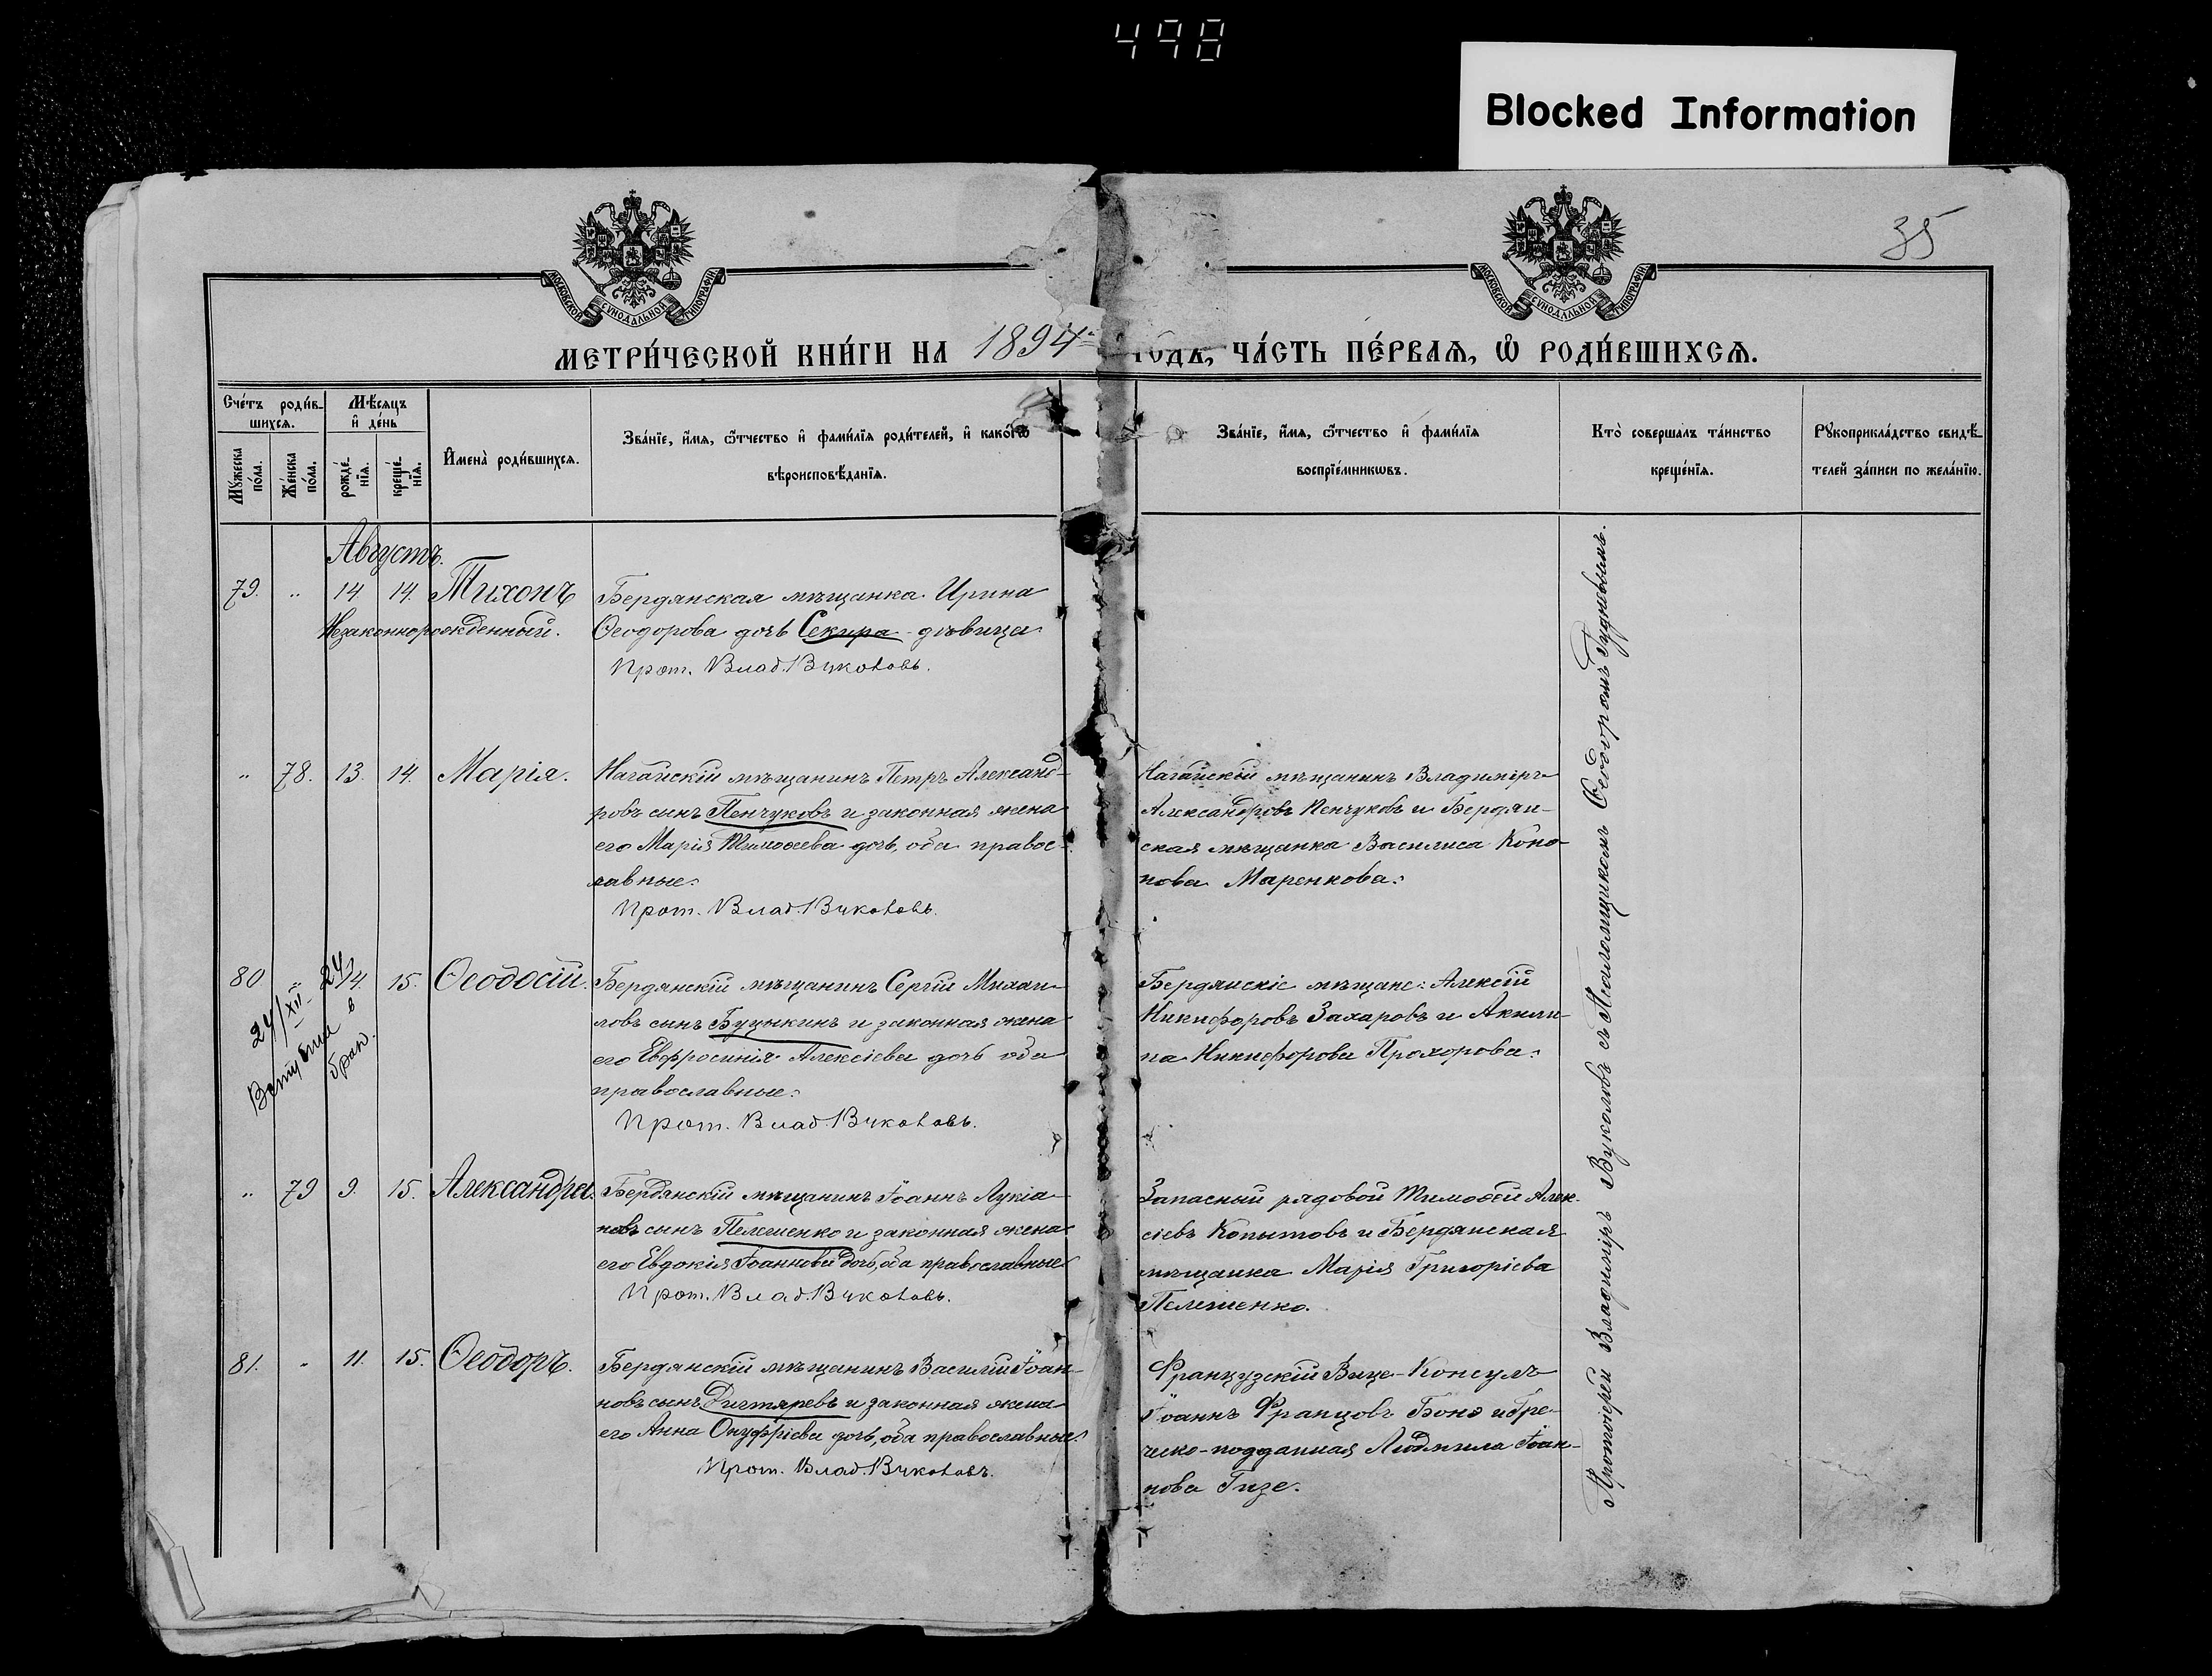 498
Blocked Information
35
МОСКОВСКОЙ СѴНОДАЛЬНОЙ ТИПОГРАФІИ
МОСКОВСКОЙ СѴНОДАЛЬНОЙ ТИПОГРАФІИ
МЕТРИ́ЧЕСКОЙ КНИ́ГИ НА 1894 ГОДЪ, ЧА́СТЬ ПЕ́РВАѦ, Ѽ РОДИ́ВШИХСѦ.
Сче́тъ роди́вшихсѧ.
Мѣ́сѧцъ и҆ де́нь
Мꙋ́жеска по́ла.
Же́нска по́ла.
рожде́нїѧ.
креще́нїѧ.
И҆мена̀ роди́вшихсѧ.
Зва́нїе, и҆́мѧ, ѻ҆́тчество и҆ фами́лїѧ роди́телей, и҆ како́гѡ
вѣроисповѣ́данїѧ.
Зва́нїе, и҆́мѧ, ѻ҆́тчество и҆ фами́лїѧ
воспрїе́мникѡвъ.
Кто̀ соверша́лъ та́инство
креще́нїѧ.
Рꙋкоприкла́дство свидѣ́-
телей за́писи по жела́нїю.
Августъ.
79. " 14 14. Тихонъ
Незаконнорожденный.
Бердянская мѣщанка Ирина
Ѳеодорова дочь Секира - дѣвица
Прот. Влад. Вуколовъ.
" 78. 13. 14. Марія.
Нагайскій мѣщанинъ Петръ Александ-
ровъ сынъ Пенчуковъ и законная жена
его Марія Тимоѳеева дочь, оба правос-
лавные.
Прот. Влад. Вуколовъ.
Нагайскій мѣщанинъ Владиміръ
Александровъ Пенчуковъ и Бердян-
ская мѣщанка Василиса Коно-
нова Маренкова.
80 " 14. 15. Ѳеодосій.
24
24/XII
Вступил в
брак.
Бердянскій мѣщанинъ Сергій Михаи-
ловъ сынъ Буцыкинъ и законная жена
его Евфросинія Алексіева дочь оба
православные.
Прот. Влад. Вуколовъ.
Бердянскіе мѣщане: Алексій
Никифоровъ Захаровъ и Акили-
на Никифорова Прохорова.
" 79 9. 15. Александра.
Бердянскій мѣщанинъ Іоаннъ Лукіа-
новъ сынъ Пелешенко и законная жена
его Евдокія Іоаннова дочь, оба православные
Прот. Влад. Вуколовъ.
Запасный рядовой Тимоѳей Алек-
сіевъ Копытовъ и Бердянская
мѣщанка Марія Григоріева
Пелешенко.
81. " 11. 15. Ѳеодоръ.
Бердянскій мѣщанинъ Василій Іоан-
новъ сынъ Дигтяревъ и законная жена
его Анна Онуфріева дочь, оба православные.
Прот. Влад. Вуколовъ.
Французскій Вице-Консулъ
Іоаннъ Францовъ Бонэ и Гре-
ческо-подданная Людмила Іоан-
нова Гизе.
Протоіерей Владиміръ Вуколовъ съ Псаломщикомъ Ѳеодоромъ